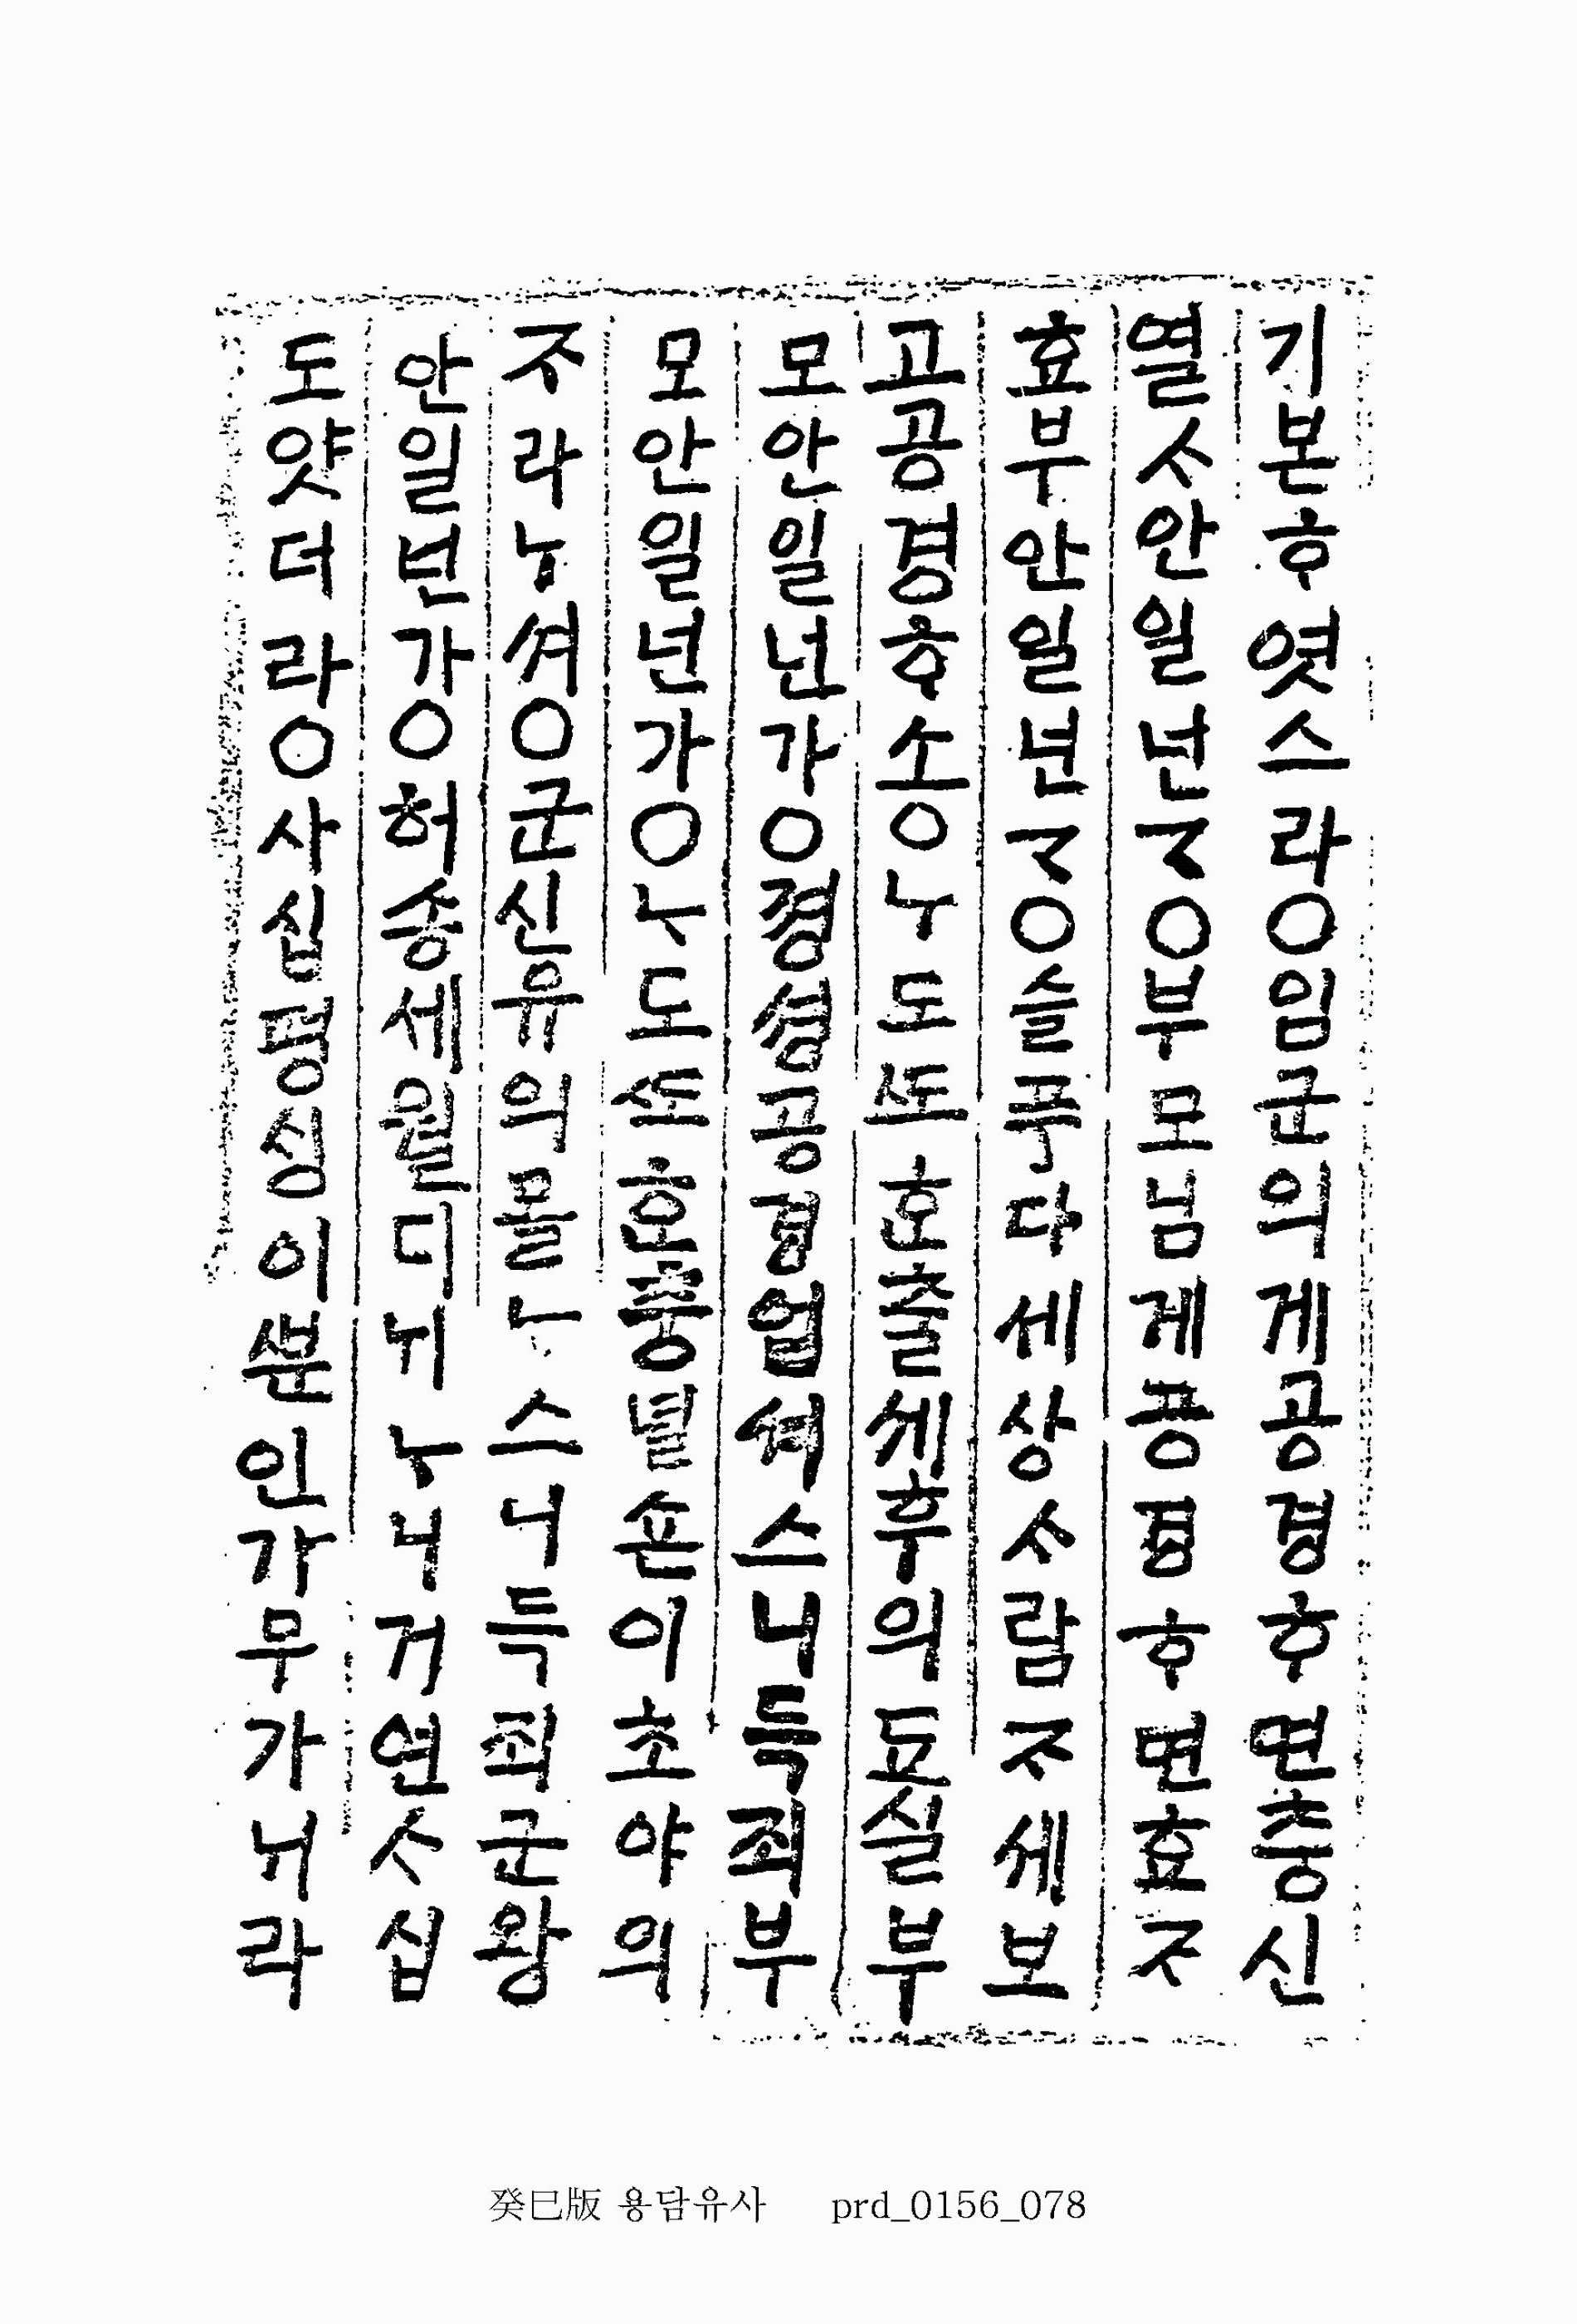 기본ᄒᆞ엿스라○임군의게공경ᄒᆞ면충신
열ᄉᆞ안일넌ᄀᆞ○부모님게공경ᄒᆞ면효ᄌᆞ
효부안일넌ᄀᆞ○슬푸다세상ᄉᆞ람ᄌᆞ세보
고공경ᄒᆞ소○ᄂᆞ도ᄯᅩ호출세후의됴실부
모안일넌가○졍셩공경업셔스니득죄부
모안일넌가○ᄂᆞ도ᄯᅩ호충녈숀이초야의
ᄌᆞ라ᄂᆞ셔○군신유의몰ᄂᆞ스니득죄군왕
안일넌가○허송세월디ᄂᆡᄂᆞ니거연ᄉᆞ십
도얏더라○사십평싱이ᄲᅮᆫ인가무가ᄂᆡ라
癸巳版 용담유사 prd_0156_078